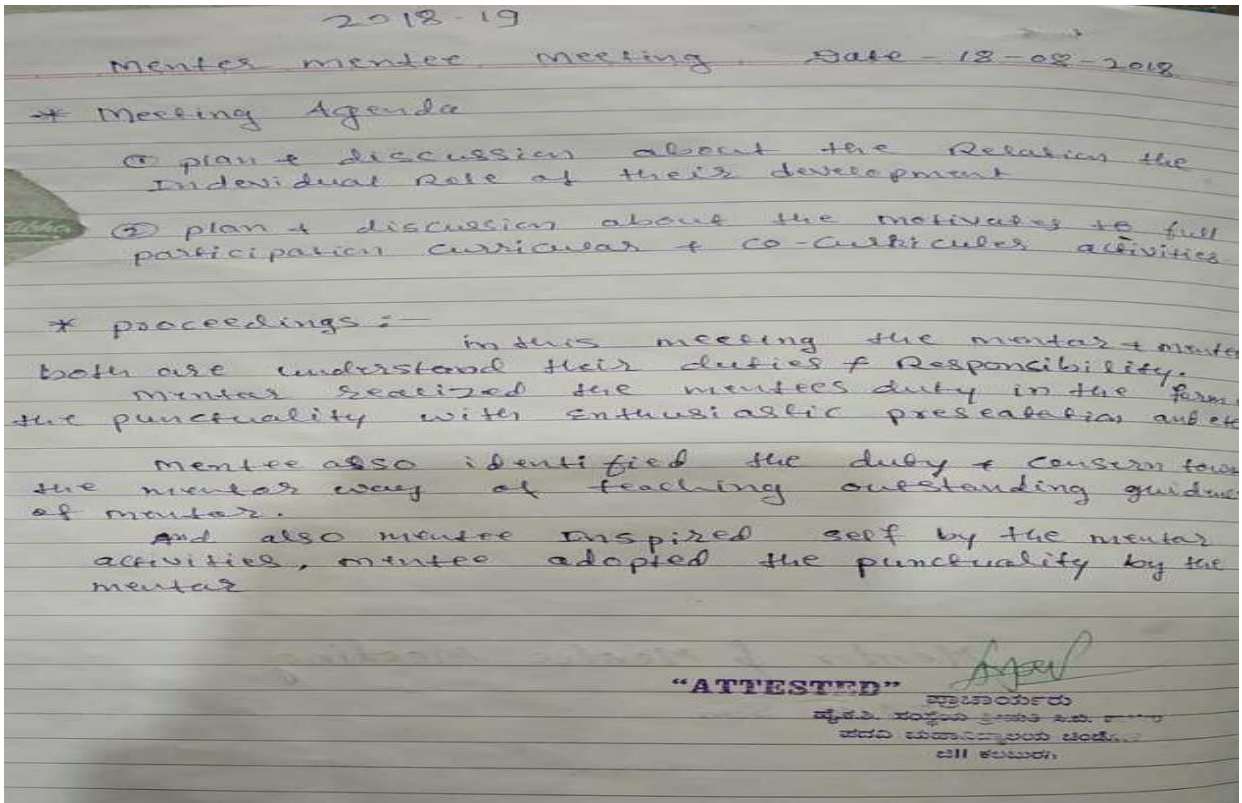 2018-19
Mentor mentee meeting Date - 18-08-2018
* Meeting Agenda
① plan & discussion about the Relation the
Indevidual Role of their development
② plan + discussion about the motivates to full
participation curricular + co-curriculer activities
* proceedings :-
in this meeting the mentor + mentee
both are understand their duties & Responcibility.
mentor realized the mentees duty in the form
the punctuality with Enthusiastic presentation and etc
mentee also identified the duty & consern
the mentor way of teaching outstanding guidance
of mentor.
And also mentee Inspired self by the mentor
activities, mentee adopted the punctuality by the
mentor
"ATTESTED"
ಪ್ರಾಚಾರ್ಯರು
ಹೈ.ಕ.ಶಿ. ಸಂಸ್ಥೆಯ ಶ್ರೀಮತಿ
ಪದವಿ ಮಹಾವಿದ್ಯಾಲಯ
ಜಿ|| ಕಲಬುರಗಿ